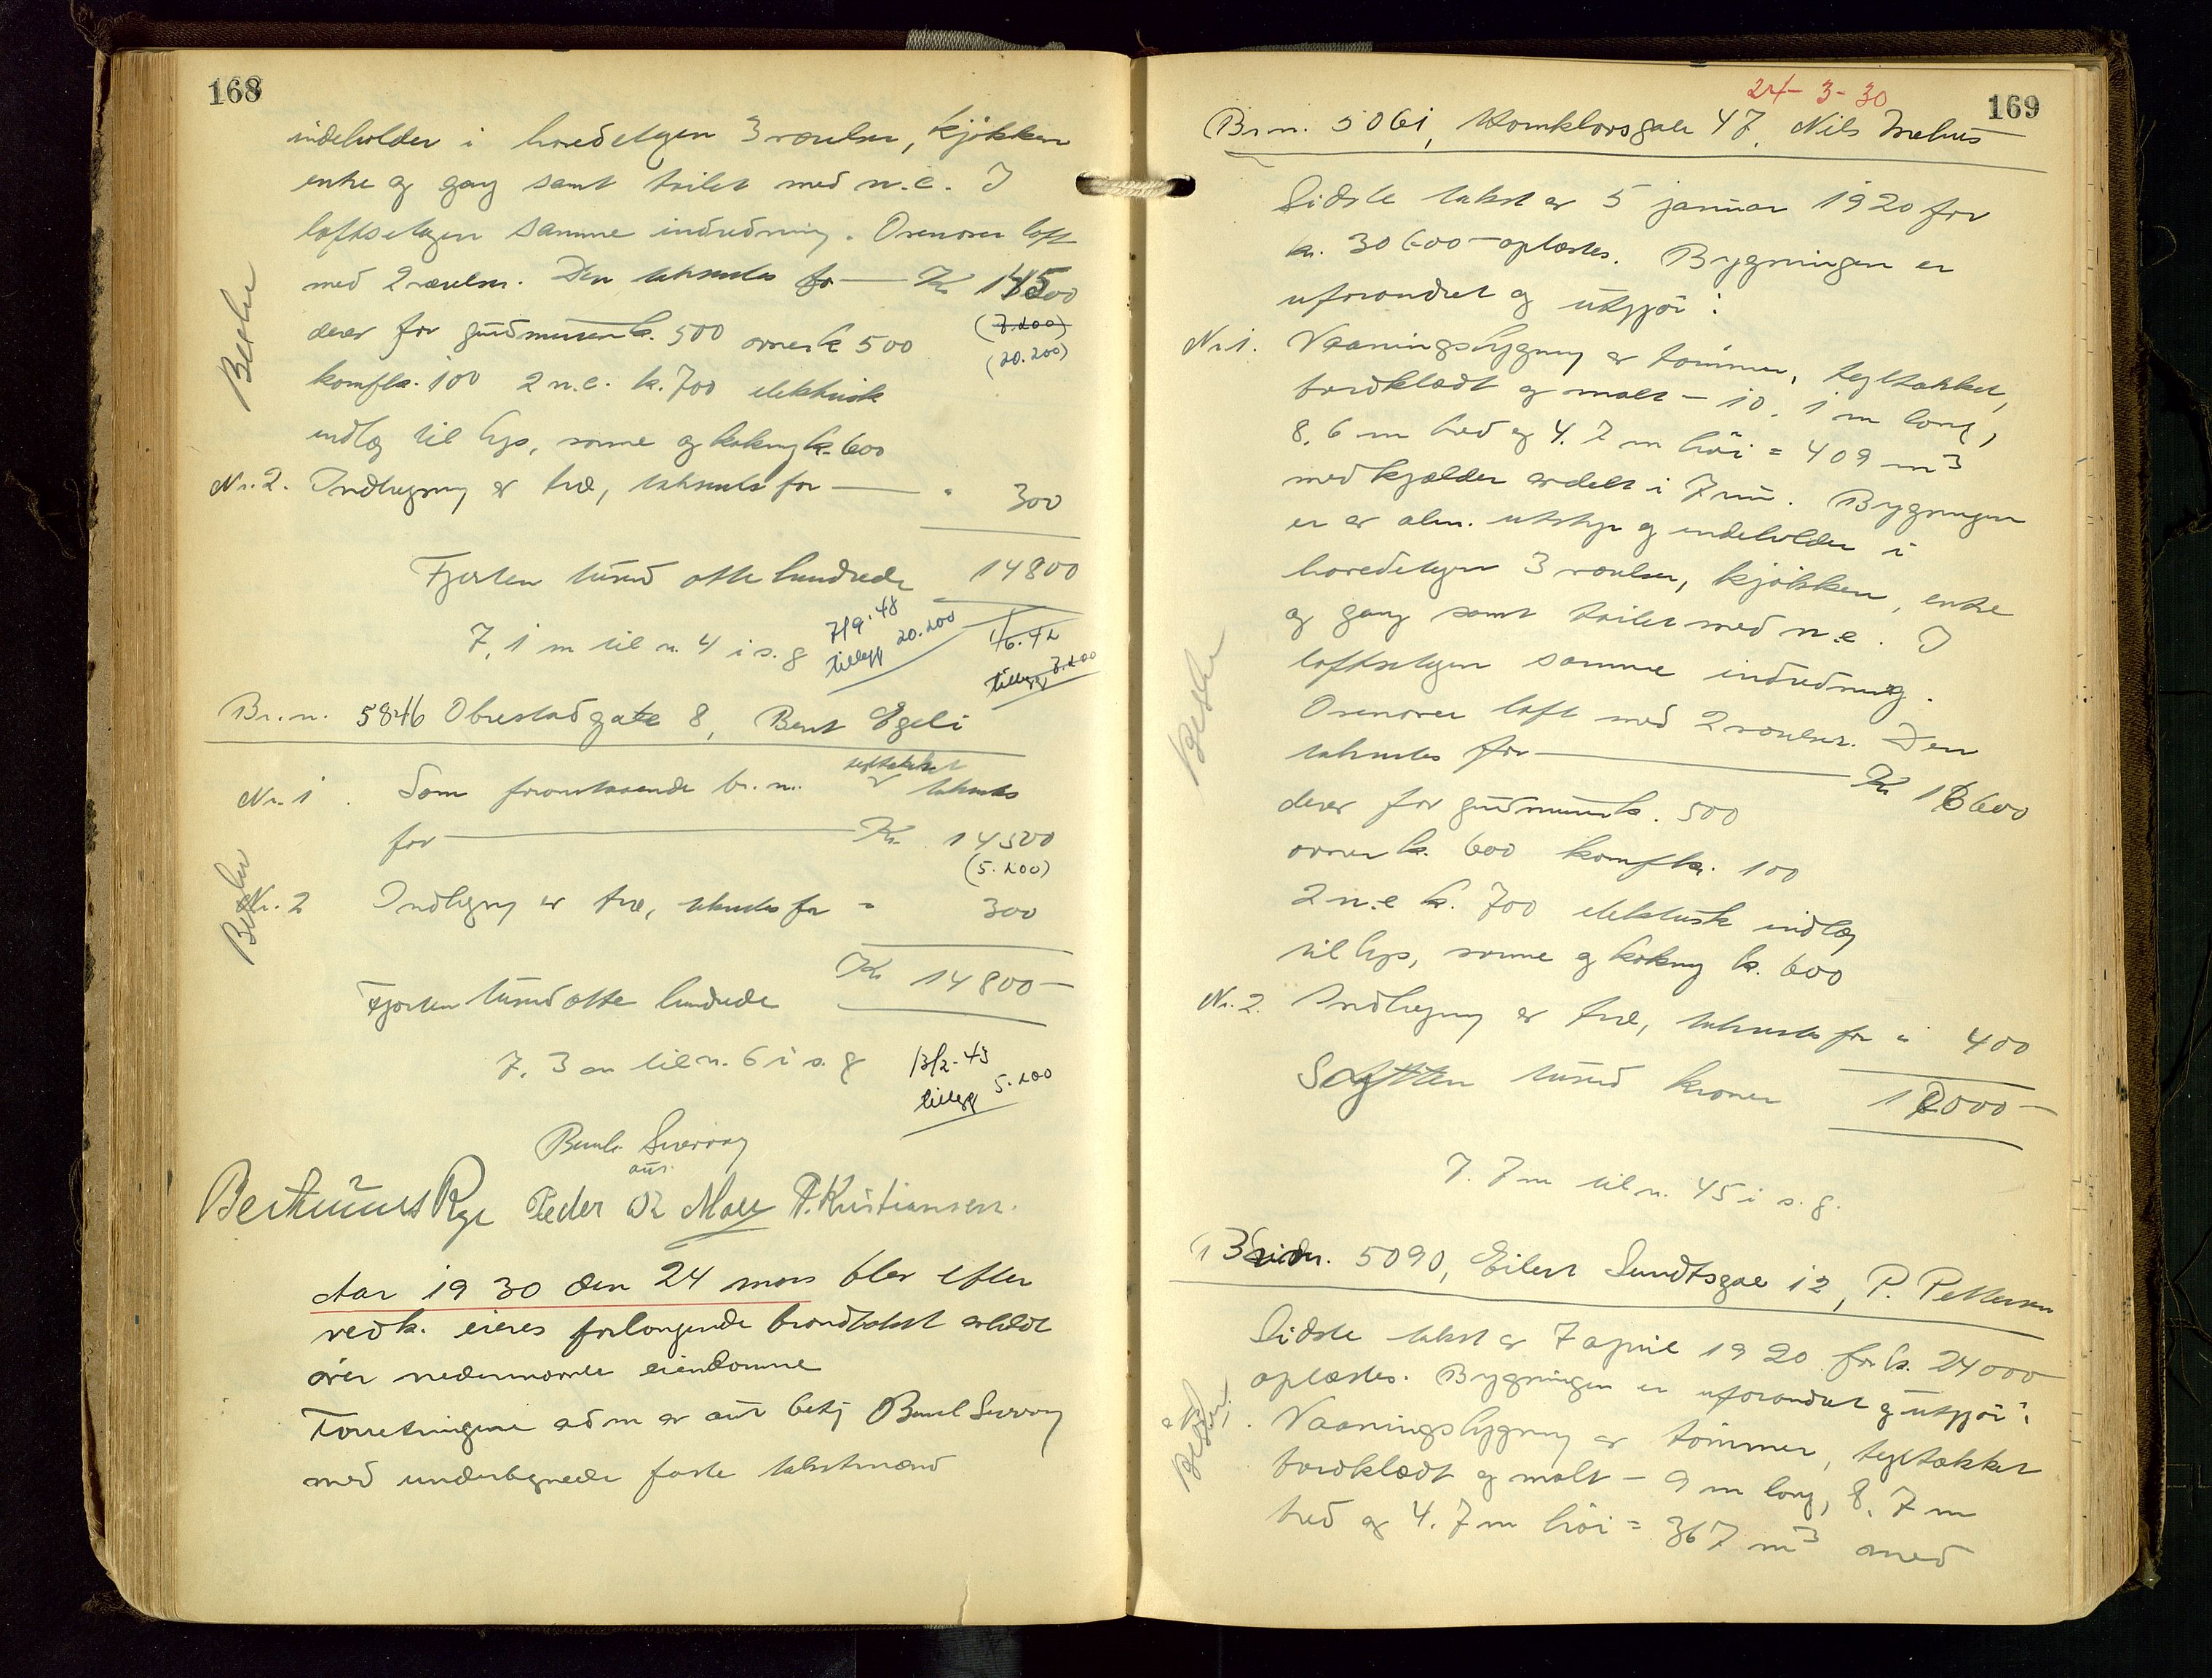 168
indeholder i hovedetagen 3 værelser, kjøkken
entre og gang samt toilet med w.c. I
loftsetagen samme indredning. Ovenover loft
med 2 værelser. Den takseres for — Kr 14500
(7.200)
derav for grundmuren k. 500 ovner k 500
(20.200)
komfk. 100 2 w.c. k. 700 elektrisk
indlæg til lys, varme og kokning k. 600
Nr. 2. Indhegning av træ, takseres for — " 300
Fjorten tusind otte hundrede 14800
7,1 m til n. 4 i s. g
7/9.'48
tillegg 20.200
1/6.42
tillegg 7.200
Br.n. 5846 Obrestadgate 8, Bent Egeli
Nr. 1. Som foranstaaende br.n. teltækket takseres
for — Kr. 14500
(5.200)
Nr. 2 Indhegning av træ, takseres for " 300
Kr 14800 —
Fjorten tusind otte hundrede
7,3 m til n. 6 i s. g
13/2-43
tillegg 5.200
aut.
Bertinius Rege Peder P. Kristiansen.
Aar 1930 den 24 mars blev efter
vedk. eieres forlangende brandtakst avholdt
over nedennævnte eiendomme
Forretningene adm av aut bestyr
med undertegnede faste takstmænd
169
24-3-30
Br.n. 5061, 47, Nils
Sidste takst av 5 januar 1920 for
kr. 30600 — oplæstes. Bygningen er
uforandret og utgjør:
Nr 1. Vaaningsbygning av tømmer, tegltækket,
bordklædt og malt — 10,1 m lang,
8,6 m bred og 4.7 m høi = 409 m3
med kjælder avdelt i 7 rum. Bygningen
er av alm. utstyr og indeholder i
hovedetagen 3 værelser, kjøkken, entre
og gang samt toilet med w.c. I
loftsetagen samme indredning.
Ovenover loft med 2 værelser. Den
takseres for — Kr 16600
derav for grundmuren k. 500
ovner k. 600 komfkr. 100
2 w.c k. 700 elektrisk indlæg
til lys, varme og kokning k. 600
Nr. 2. Indhegning av træ, takseres for " 400
Sytten tusind kroner 17000 —
7.7 m til n. 45 i s. g.
Br.n. 5090, Eilert Sundtsgae 12, P. Pettersen
Sidste takst av 7 april 1920 for k. 24000
oplæstes. Bygningen er uforandret og utgjør:
Vaaningsbygning av tømmer, tegltækket
bordklædt og malt — 9 m lang, 8,7 m
bred og 4.7 m høi = 367 m3 med